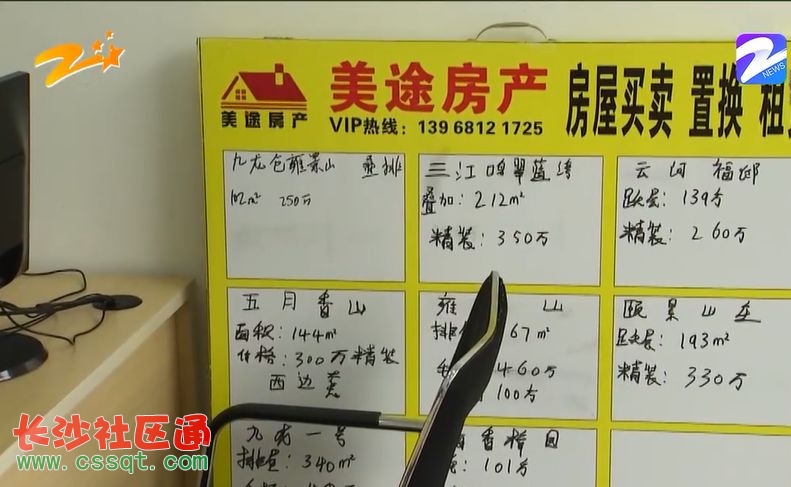 NEWS
美途房产
美途房产
VIP热线：139 6812 1725
房屋买卖 置换
九龙仓雍景山 叠排
250万
三江鸣翠蓝湾
叠加：212m²
精装：350万
福邸
跃层：139方
精装：260万
五月香山
面积：144m²
价格：300万精装
西边套
雍 山
67m²
460万
100方
颐景山庄
跃层：193m²
精装：330万
九龙一号
340m²
香樟园
101方
长沙社区通
www.cssqt.com